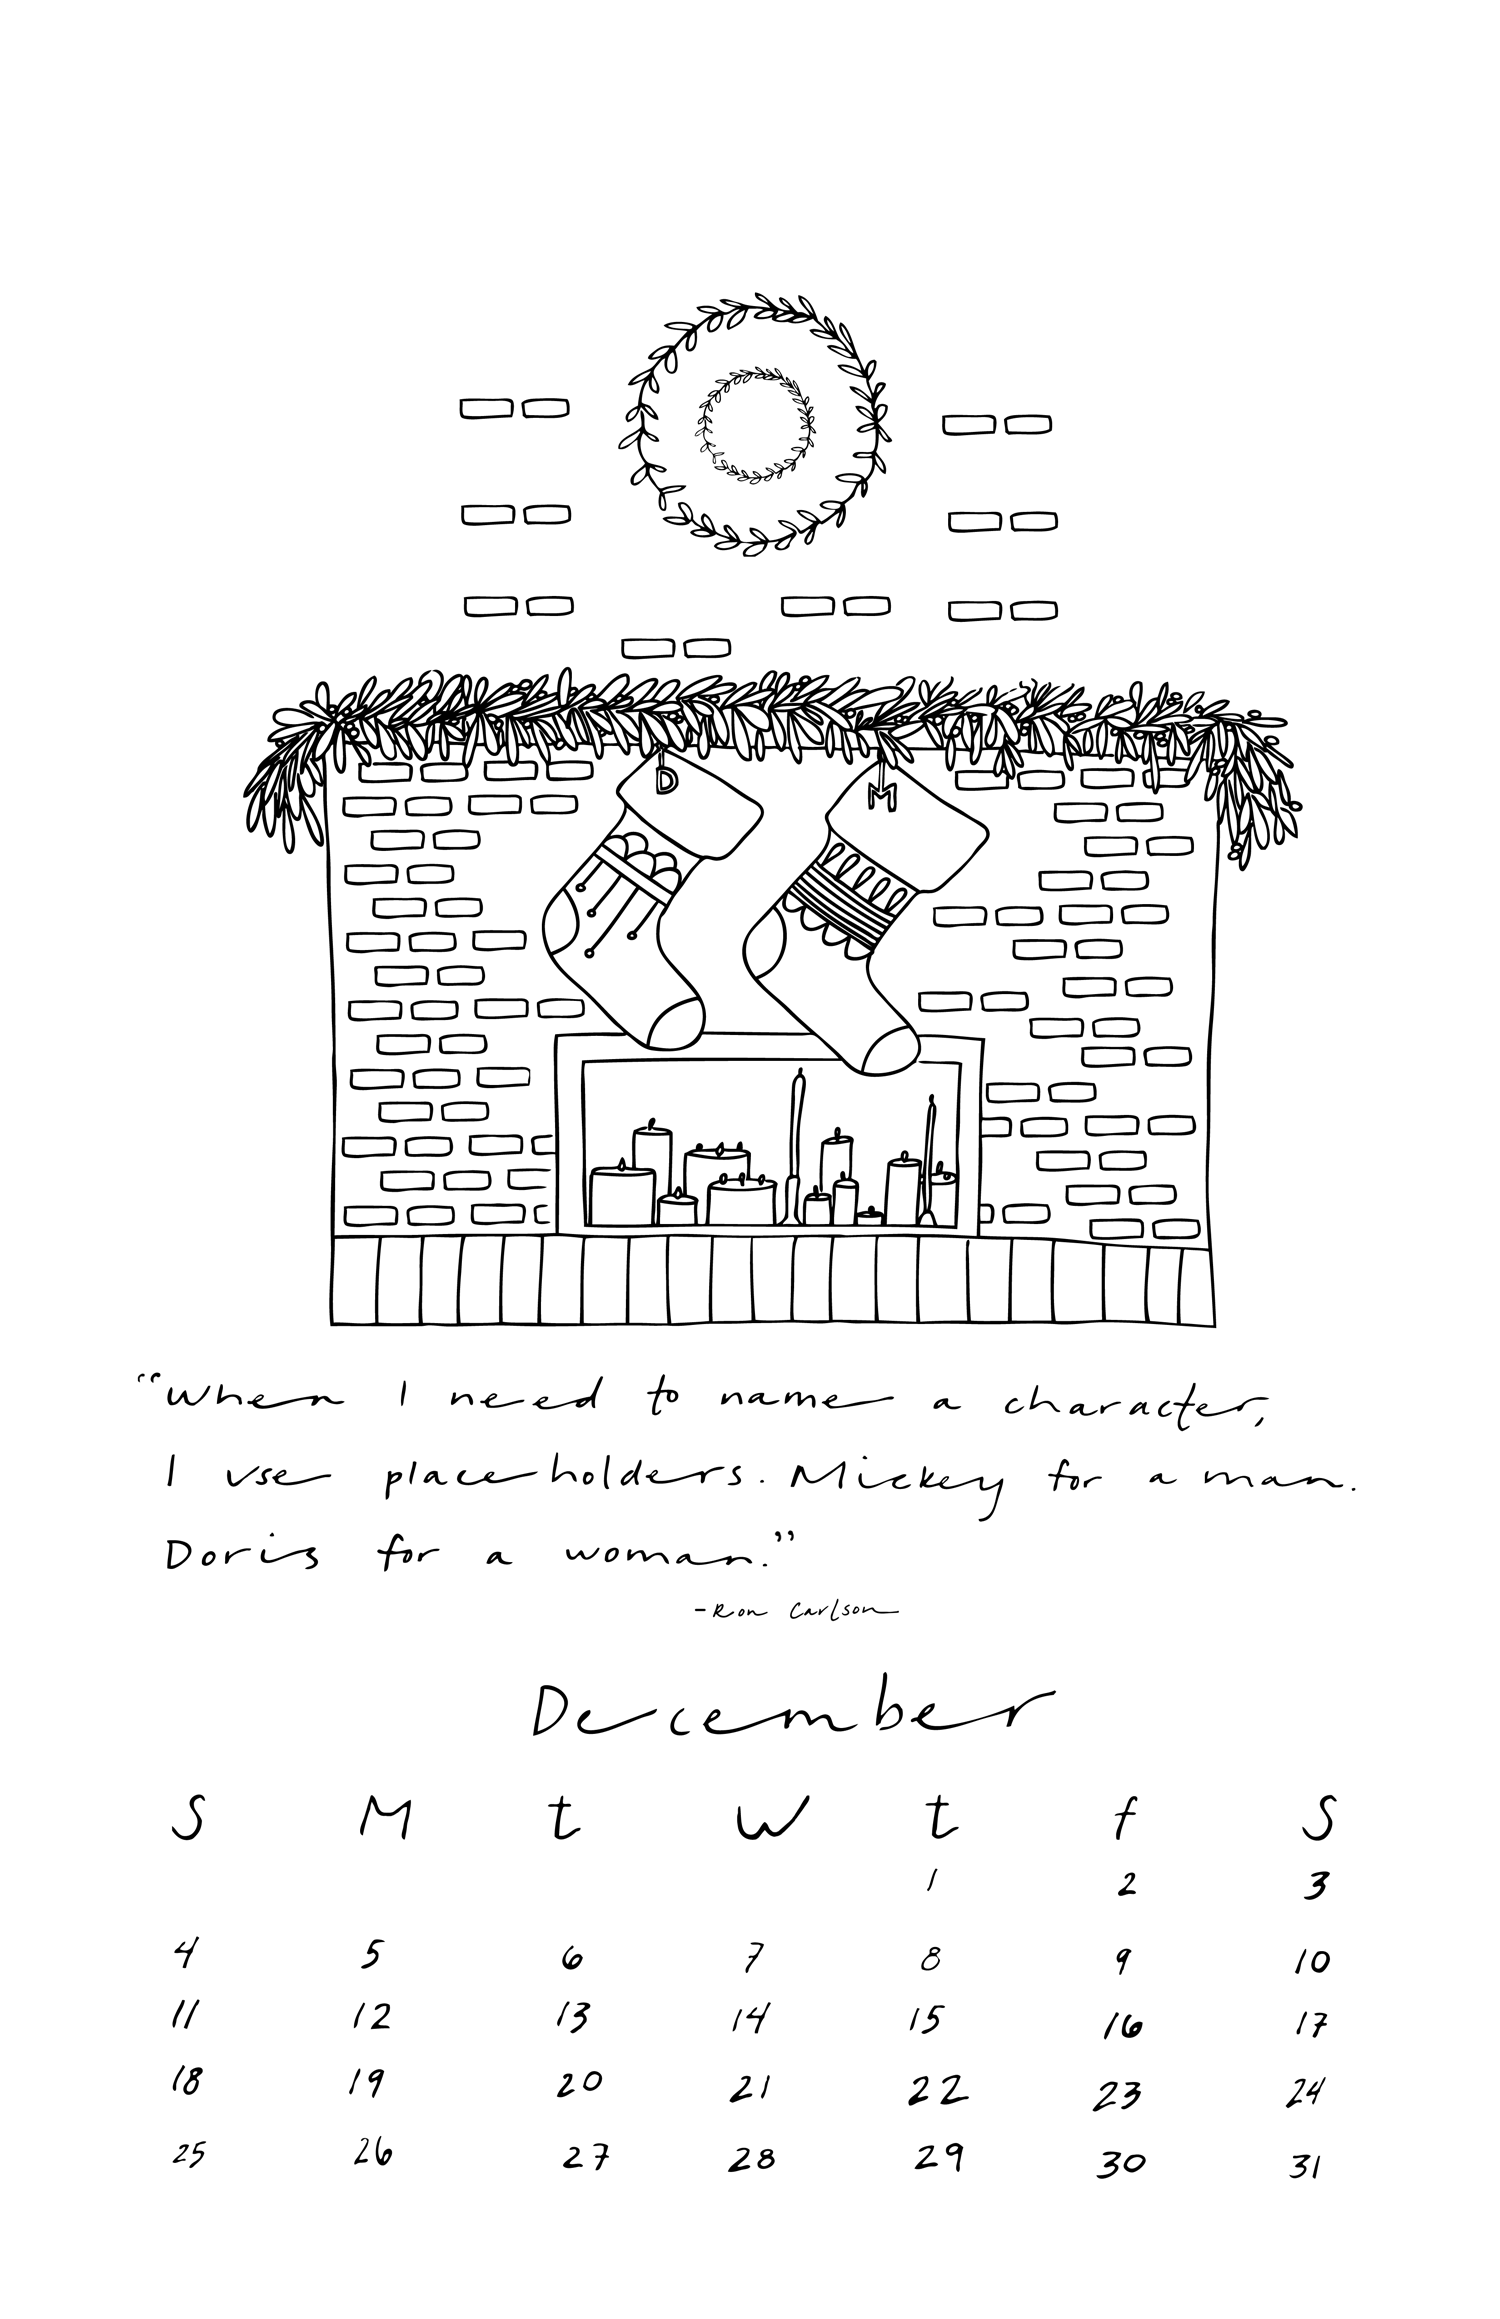 D M
“When I need to name a character,
I use placeholders. Mickey for a man.
Doris for a woman.”
-Ron Carlson
December
S M t W t f S
1 2 3
4 5 6 7 8 9 10
11 12 13 14 15 16 17
18 19 20 21 22 23 24
25 26 27 28 29 30 31